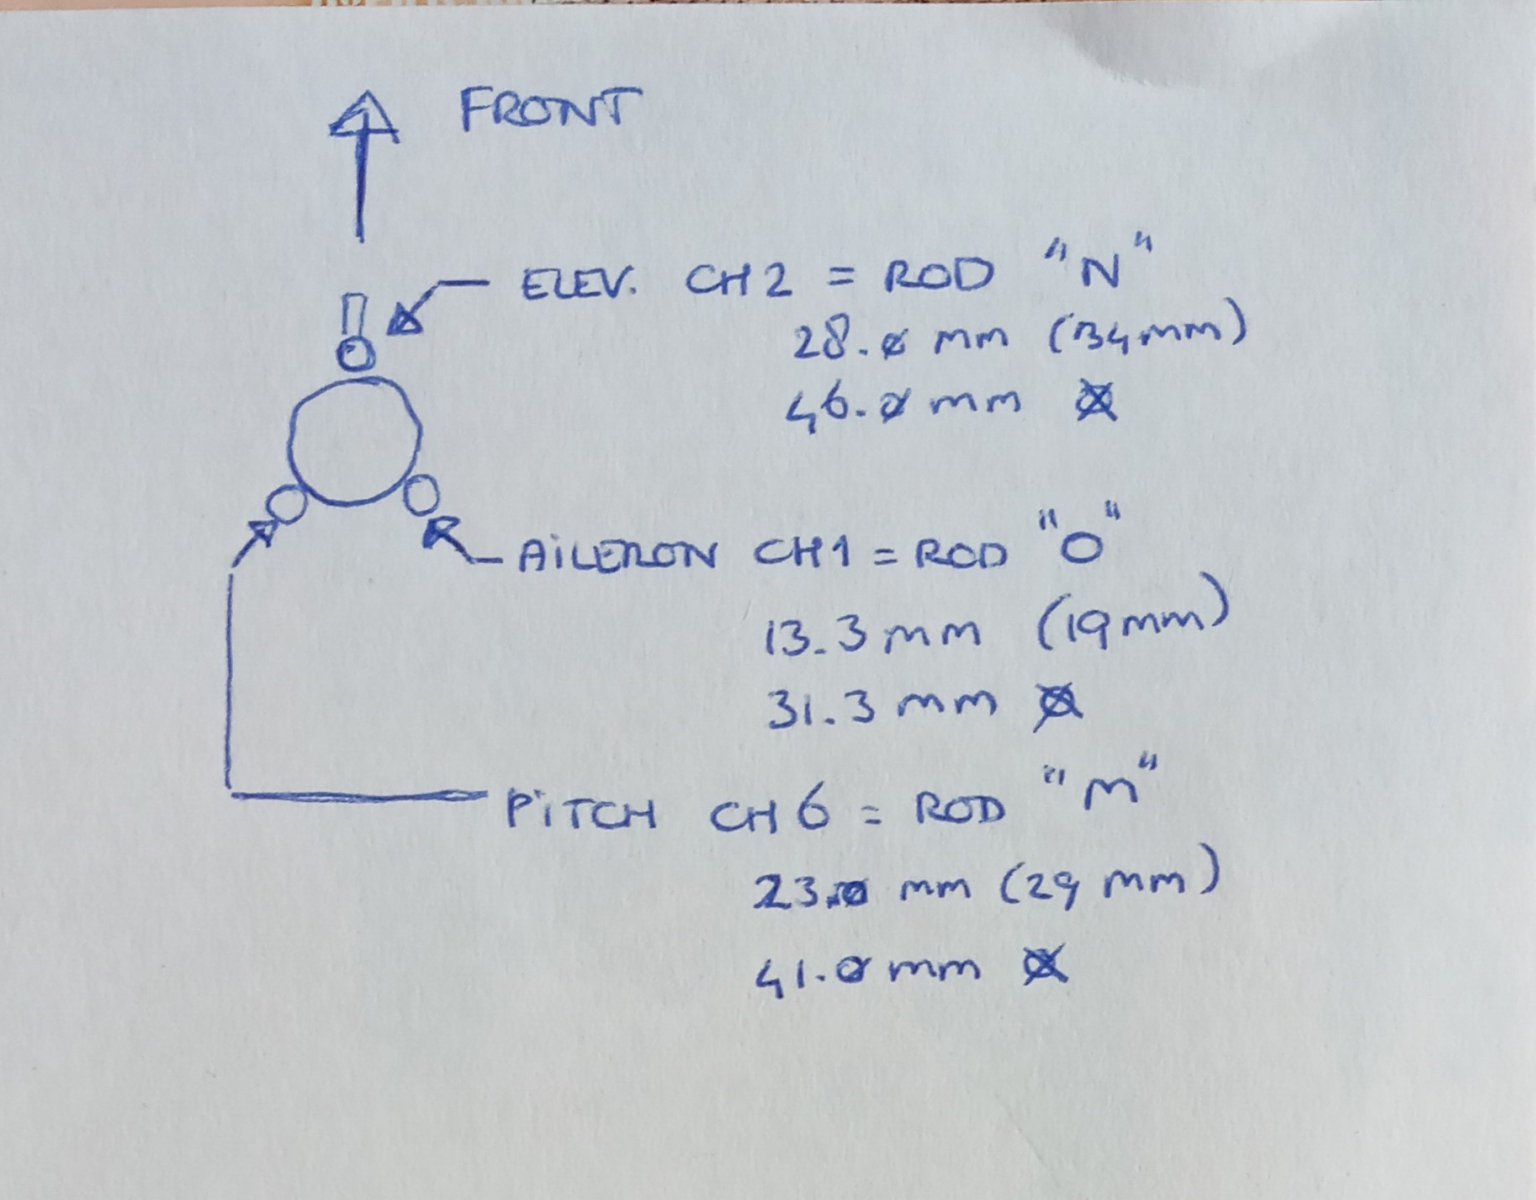 FRONT
ELEV. CH2 = ROD "N"
28.0 mm (34mm)
46.0 mm
AiLERON CH1 = ROD "O"
13.3 mm (19mm)
31.3 mm
PiTCH CH6 = ROD "M"
23.0 mm (29 mm)
41.0 mm